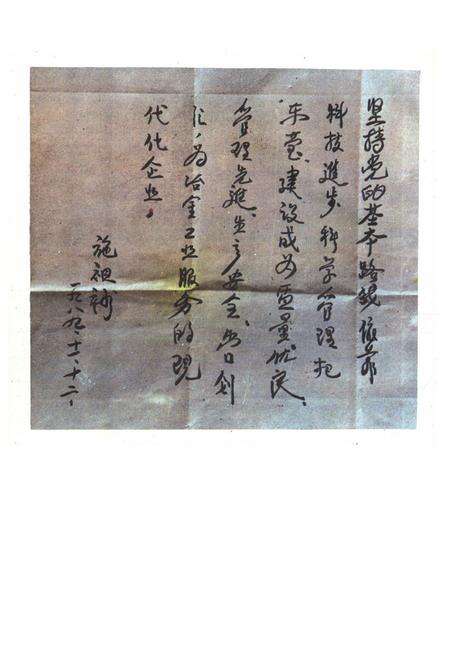 坚持党的基本路线依靠
科技进步科学管理把
建设成为质量优良、
管理先进、生产安全、出口创
汇,为冶金工业服务的现
代化企业。
施祖
一九八九、十一、十二、